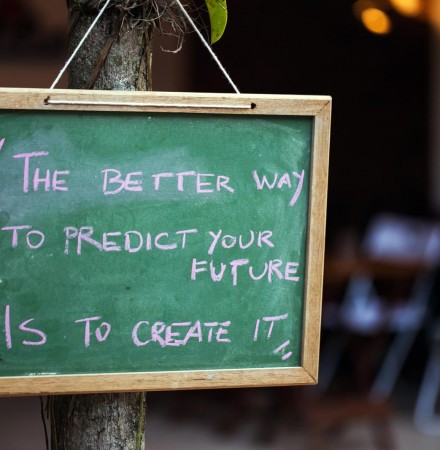 "THE BETTER WAY
TO PREDICT YOUR
FUTURE
IS TO CREATE IT"